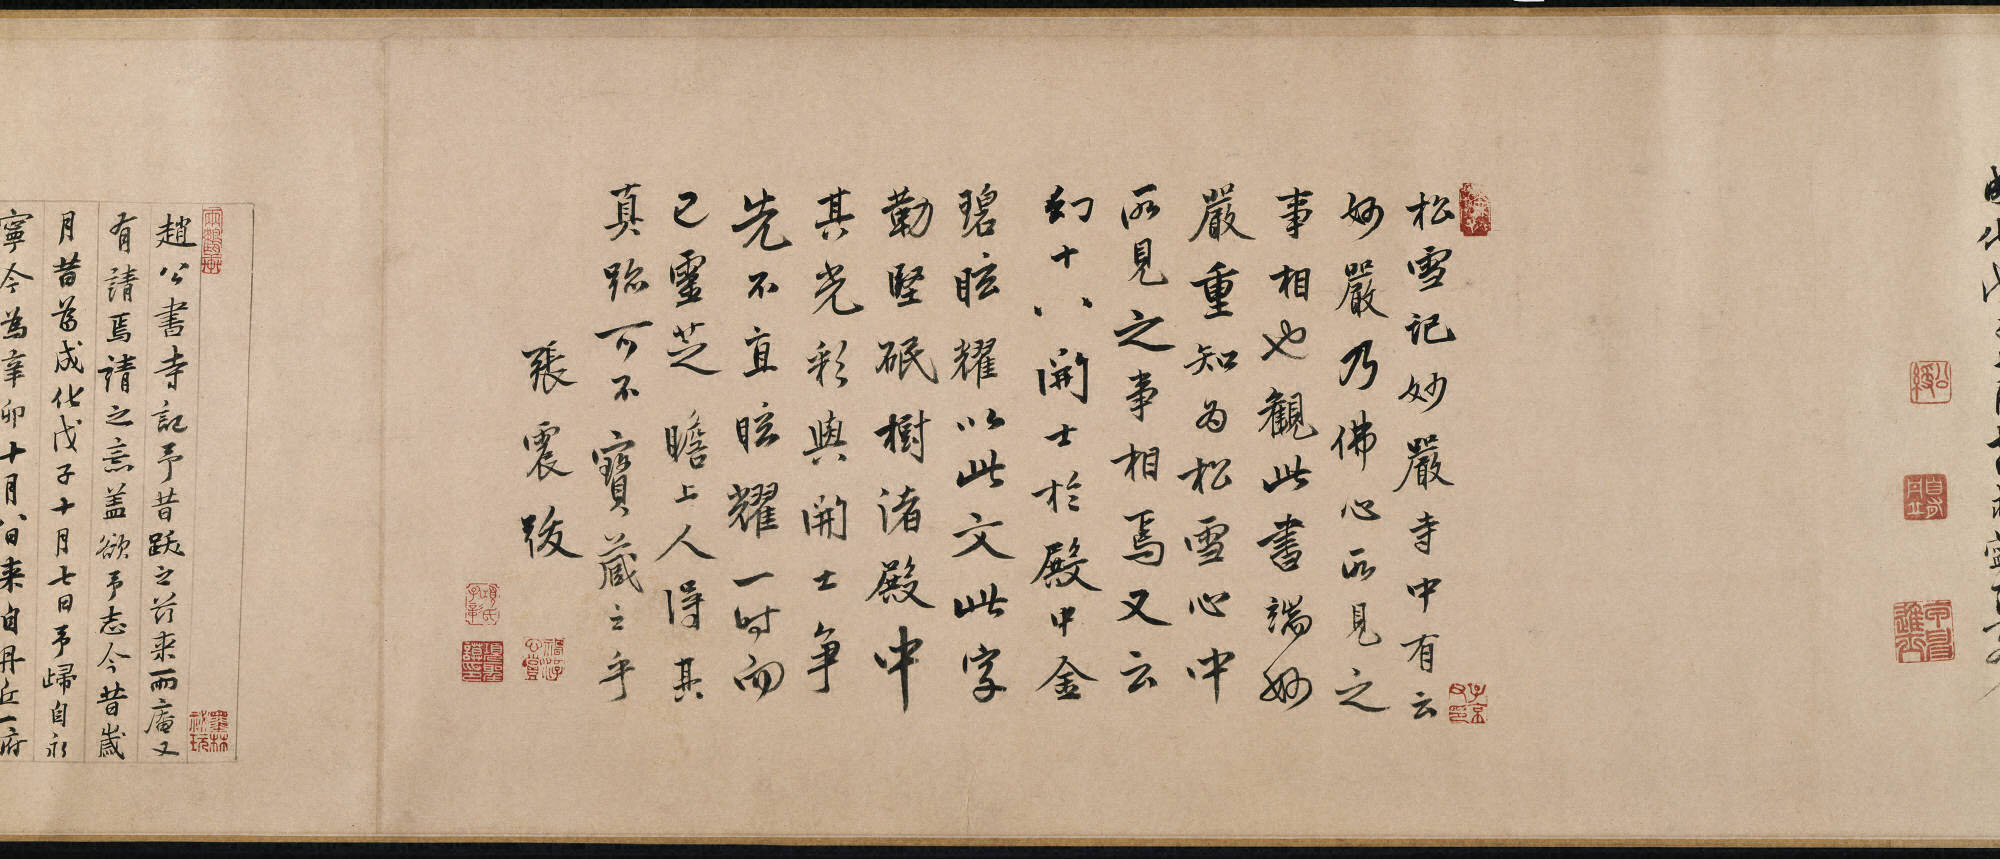 松雪記妙嚴寺中有云
妙嚴乃佛心所見之
事相也觀此書端妙
嚴重知為松雪心中
所見之事相焉又云
幻十八開士於殿中金
碧眩耀以此文此字
勒堅珉樹渚殿中
其光彩與開士爭
先不宜眩耀一時而
已靈芝瞻上人得其
真跡可不寶藏之乎
張震跋
趙公書寺記予昔跋之茲来而庵又
有請焉請之意盖欲予志今昔歲
月昔當成化戊子十月七日予歸自永
寧今為辛卯十月八日来自丹丘一府